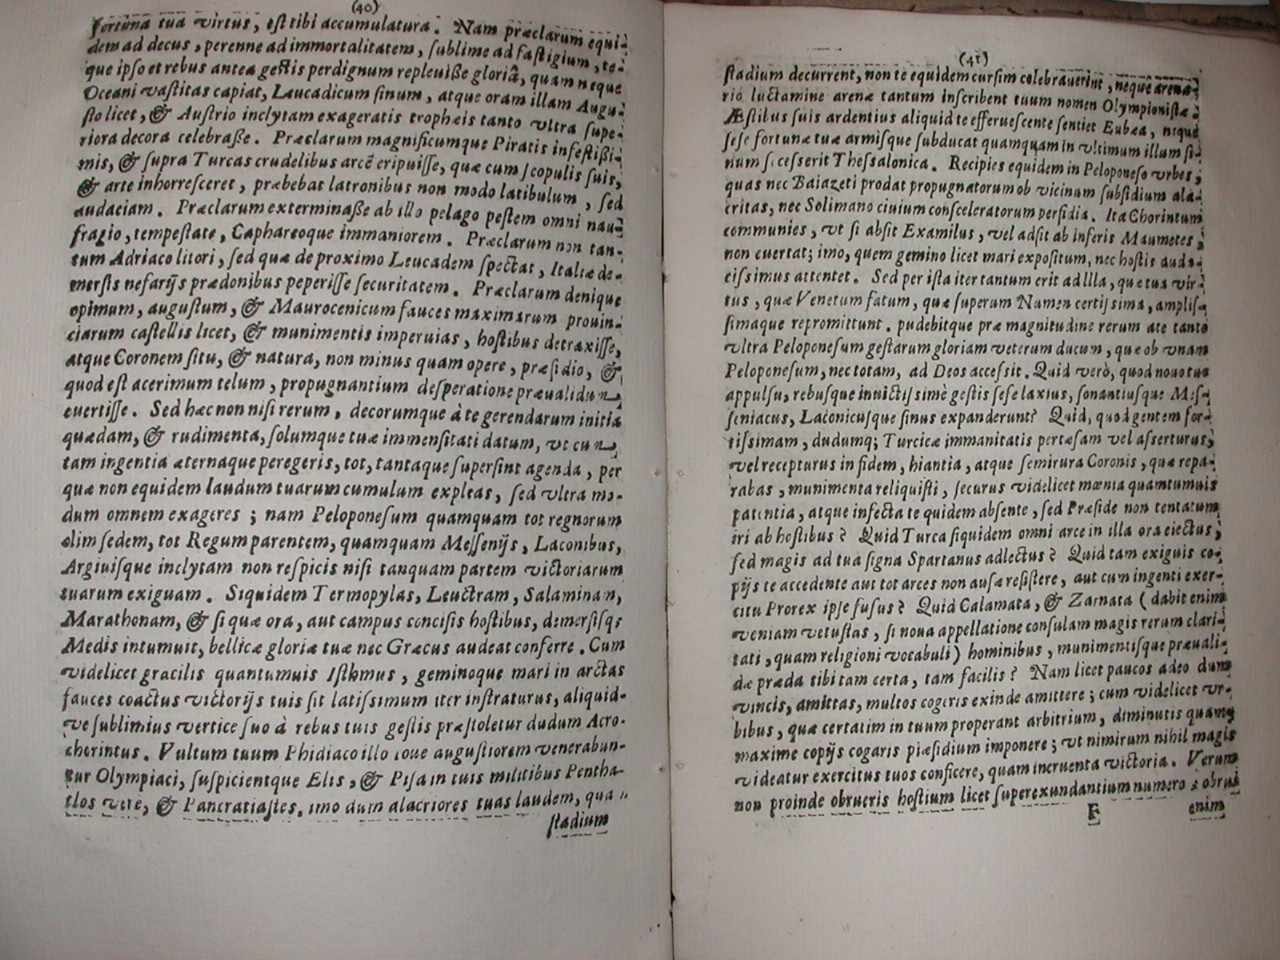 (40)
fortuna tua virtus, est tibi accumulatura. Nam præclarum equi-
dem ad decus, perenne ad immortalitatem, sublime ad fastigium, te-
que ipso et rebus antea gestis perdignum repleuiße gloriâ, quam neque
Oceani vastitas capiat, Leucadicum sinum, atque oram illam Augu-
sto licet, & Austrio inclytam exageratis trophæis tanto vltra supe-
riora decora celebraße. Præclarum magnificumque Piratis infestißi-
mis, & supra Turcas crudelibus arcē eripuisse, quæ cum scopulis suis,
& arte inhorresceret, præbebat latronibus non modo latibulum, sed
audaciam. Præclarum exterminaße ab illo pelago pestem omni nau-
fragio, tempestate, Caphareoque immaniorem. Præclarum non tan-
tum Adriaco litori, sed quæ de proximo Leucadem spectat, Italiæ de-
mersis nefarijs prædonibus peperisse securitatem. Præclarum denique
opimum, augustum, & Maurocenicum fauces maximarum prouin-
ciarum castellis licet, & munimentis imperuias, hostibus detraxisse,
atque Coronem situ, & natura, non minus quam opere, præsidio, &
quod est acerimum telum, propugnantium desperatione præualidum
euertisse. Sed hæc non nisi rerum, decorumque à te gerendarum initia
quædam, & rudimenta, solumque tuæ immensitati datum, vt cum
tam ingentia æternaque peregeris, tot, tantaque supersint agenda, per
quæ non equidem laudum tuarum cumulum expleas, sed vltra mo-
dum omnem exageres; nam Peloponesum quamquam tot regnorum
olim sedem, tot Regum parentem, quamquam Messenijs, Laconibus,
Argiuisque inclytam non respicis nisi tanquam partem victoriarum
tuarum exiguam. Siquidem Termopylas, Leuctram, Salaminam,
Marathonam, & si quæ ora, aut campus concisis hostibus, demersisqs
Medis intumuit, bellicæ gloriæ tuæ nec Græcus audeat conferre. Cum
videlicet gracilis quantumuis Isthmus, geminoque mari in arctas
fauces coactus victorijs tuis sit latissimum iter instraturus, aliquid-
ve sublimius vertice suo à rebus tuis gestis præstoletur dudum Acro-
cherintus. Vultum tuum Phidiaco illo Ioue augustiorem venerabun-
tur Olympiaci, suspicientque Elis, & Pisa in tuis militibus Pentha-
tlos vere, & Pancratiastes, imo dum alacriores tuas laudem, qua
stadium
(41)
stadium decurrent, non te equidem cursim celebrauerint, neque arena-
rio luctamine arenæ tantum inscribent tuum nomen Olympionistæ.
Æstibus suis ardentius aliquid te efferuescente sentiet Eubæa, neque
sese fortunæ tuæ armisque subducat quamquam in vltimum illum si-
num secesserit Thessalonica. Recipies equidem in Peloponeso vrbes,
quas nec Baiazeti prodat propugnatorum ob vicinum subsidium ala-
critas, nec Solimano ciuium consceleratorum persidia. Ita Chorintum
communies, vt si absit Examilus, vel adsit ab inferis Maumetes,
non euertat; imo, quem gemino licet mari expositum, nec hostis auda-
cissimus attentet. Sed per ista iter tantum erit ad Illa, quæ tua vir-
tus, quæ Venetum fatum, quæ superum Numen certissima, amplis-
simaque repromittunt. pudebitque præ magnitudine rerum a te tanto
vltra Peloponesum gestarum gloriam veterum ducum, que ob vnam
Peloponesum, nec totam, ad Deos accessit. Quid verò, quod nouo tuo
appulsu, rebusque inuictissimè gestis sese laxius, sonantiusque Mes-
seniacus, Laconicusque sinus expanderunt? Quid, quod gentem for-
tissimam, dudumq; Turcicæ immanitatis pertæsam vel asserturus,
vel recepturus in fidem, hiantia, atque semirura Coronis, quæ repa-
rabas, munimenta reliquisti, securus videlicet mœnia quamtumuis
patentia, atque infecta te quidem absente, sed Præside non tentatum
iri ab hostibus? Quid Turca siquidem omni arce in illa ora eiectus,
sed magis ad tua signa Spartanus adlectus? Quid tam exiguis co-
pijs te accedente aut tot arces non ausæ resistere, aut cum ingenti exer-
citu Prorex ipse fusus? Quid Calamata, & Zarnata (dabit enim
veniam vetustas, si noua appellatione consulam magis rerum clari-
tati, quam religioni vocabuli) hominibus, munimentisque præuali-
dæ præda tibi tam certa, tam facilis? Nam licet paucos adeo dum
vincis, amittas, multos cogeris exinde amittere; cum videlicet vr-
bibus, quæ certatim in tuum properant arbitrium, diminutis quam
maxime copijs cogaris præsidium imponere; vt nimirum nihil magis
videatur exercitus tuos conficere, quam incruenta victoria. Verum
non proinde obrueris hostium licet superexundantium numero; obrui
F
enim